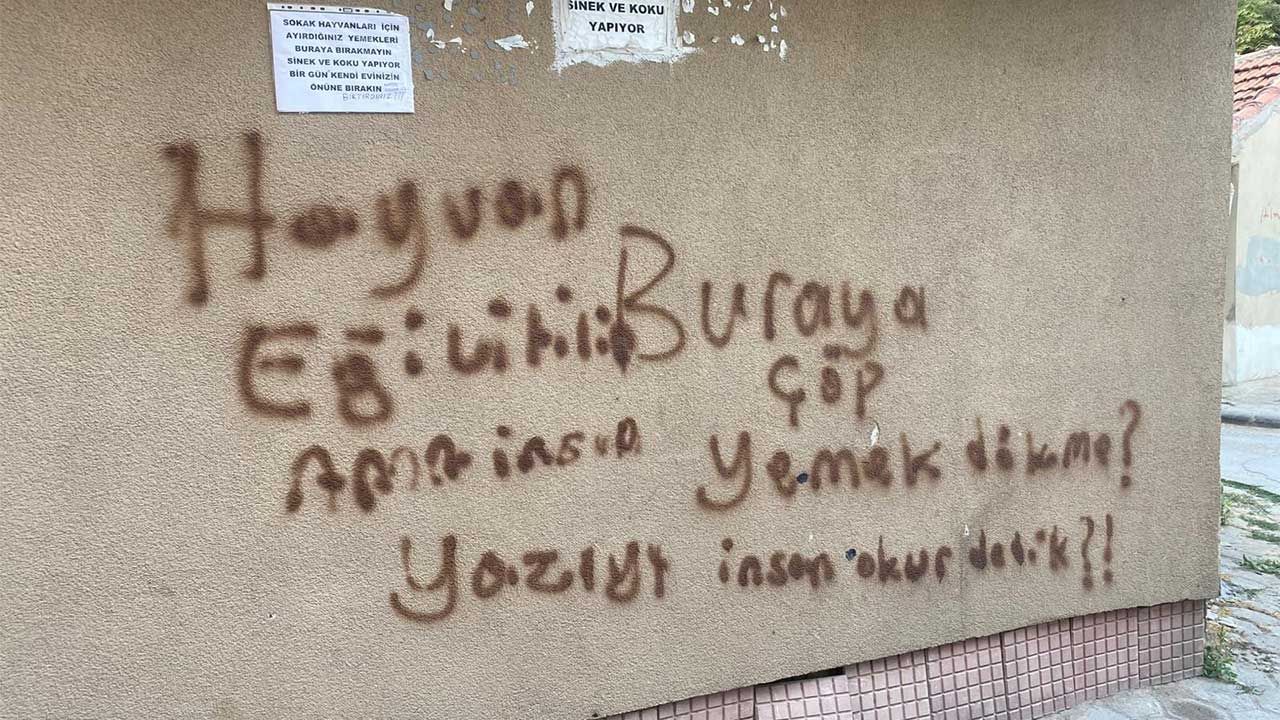 SOKAK HAYVANLARI İÇİN
AYIRDIĞINIZ YEMEKLERİ
BURAYA BIRAKMAYIN
SİNEK VE KOKU YAPIYOR
BİR GÜN KENDİ EVİNİZİN
ÖNÜNE BIRAKIN
BIKTIRDINIZ!!!
SİNEK VE KOKU
YAPIYOR
Hayvan
Eğitilir
AMA insan
Buraya
ÇöP
Yemek dökme?
Yazıyı insan okur dedik?!